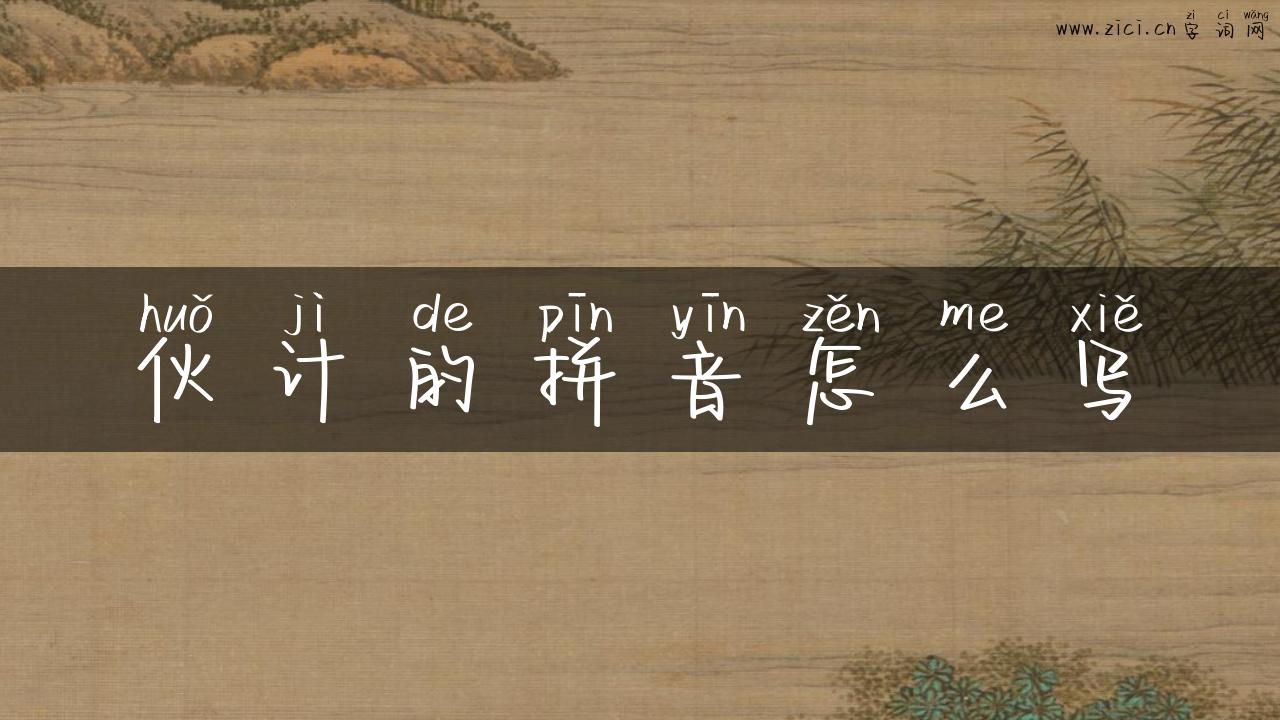 zì cí wǎng
www.zici.cn 字词网
huǒ jì de pīn yīn zěn me xiě
伙计的拼音怎么写